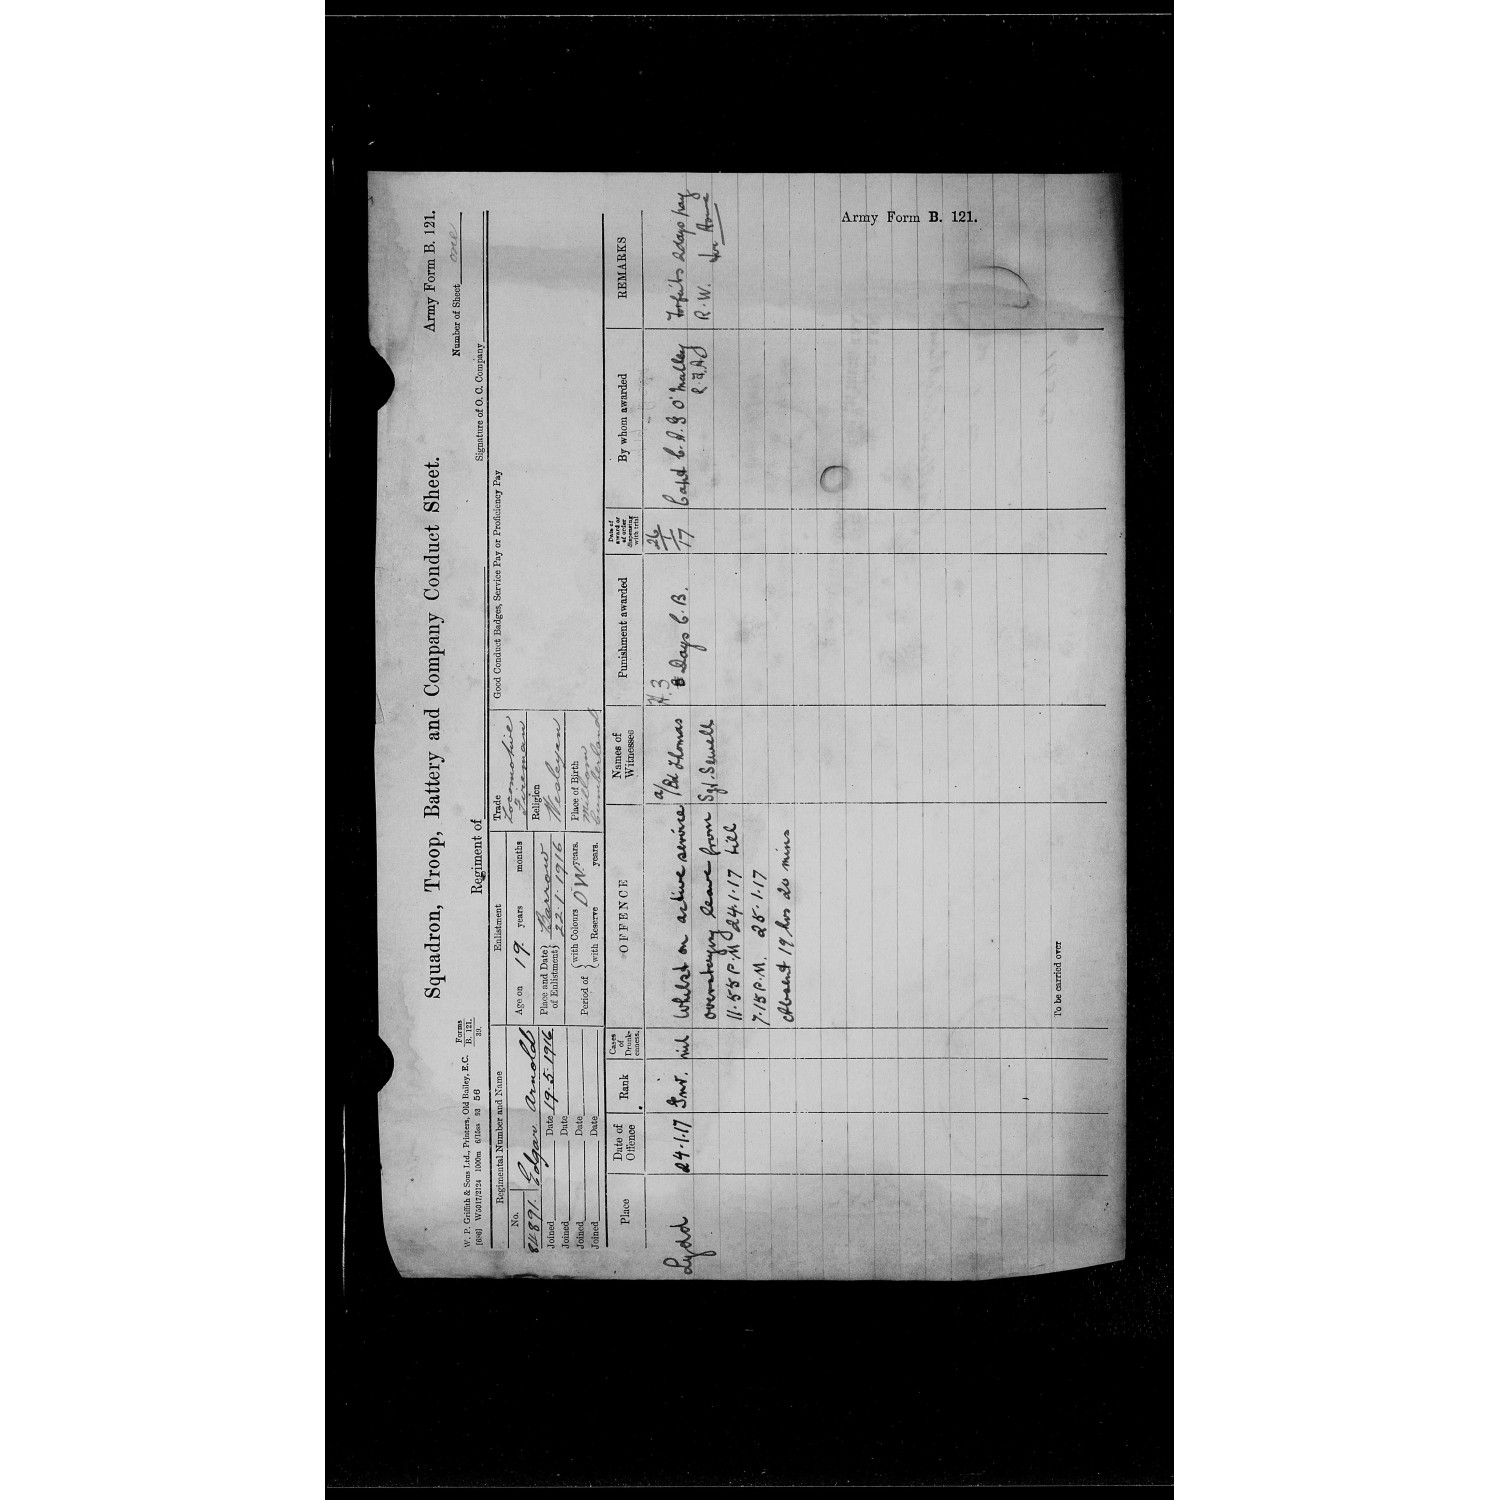 Squadron, Troop, Battery and Company Conduct Sheet.
Army Form B. 121.
Number of Sheet one
W. P. Griffith & Sons Ltd., Printers, Old Bailey, E.C.
Forms
B. 121.
39.
Regiment of
Signature of O. C. Company
Regimental Number and Name
No.
Edgar Arnold
Joined Date 19.5.1916
Joined Date
Joined Date
Joined Date
Enlistment
Age on 19 years months
Place and Date of Enlistment Barrow 22.1.1916
Period of with Colours D W years.
with Reserve years.
Trade
Locomotive
Fireman
Religion
Wesleyan
Place of Birth
Millom
Cumberland
Good Conduct Badges, Service Pay or Proficiency Pay
Place
Date of Offence
Rank
Cases of Drunkenness.
OFFENCE
Names of Witnesses
Punishment awarded
Date of award or of order dispensing with trial
By whom awarded
REMARKS
Lydd
24.1.17
nil
Whilst on active service
overstaying leave from
11.55 P.M 24.1.17 till
7.15 P.M. 25.1.17
Absent 19 hrs 20 mins
a/Bd Thomas
Sgt. Sewell
Days C.B.
26/1/17
Capt C.A.G O'Malley
Forfeits 2 days pay
R.W.
To be carried over
Army Form B. 121.